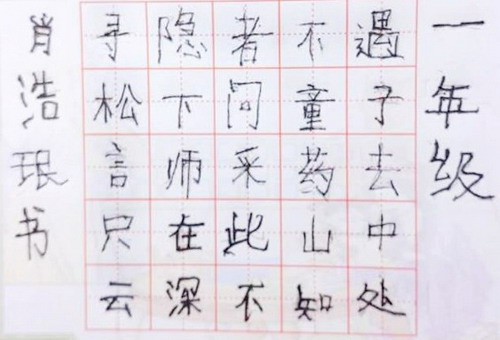 一年级
寻隐者不遇
松下问童子
言师采药去
只在此山中
云深不知处
肖浩珉书